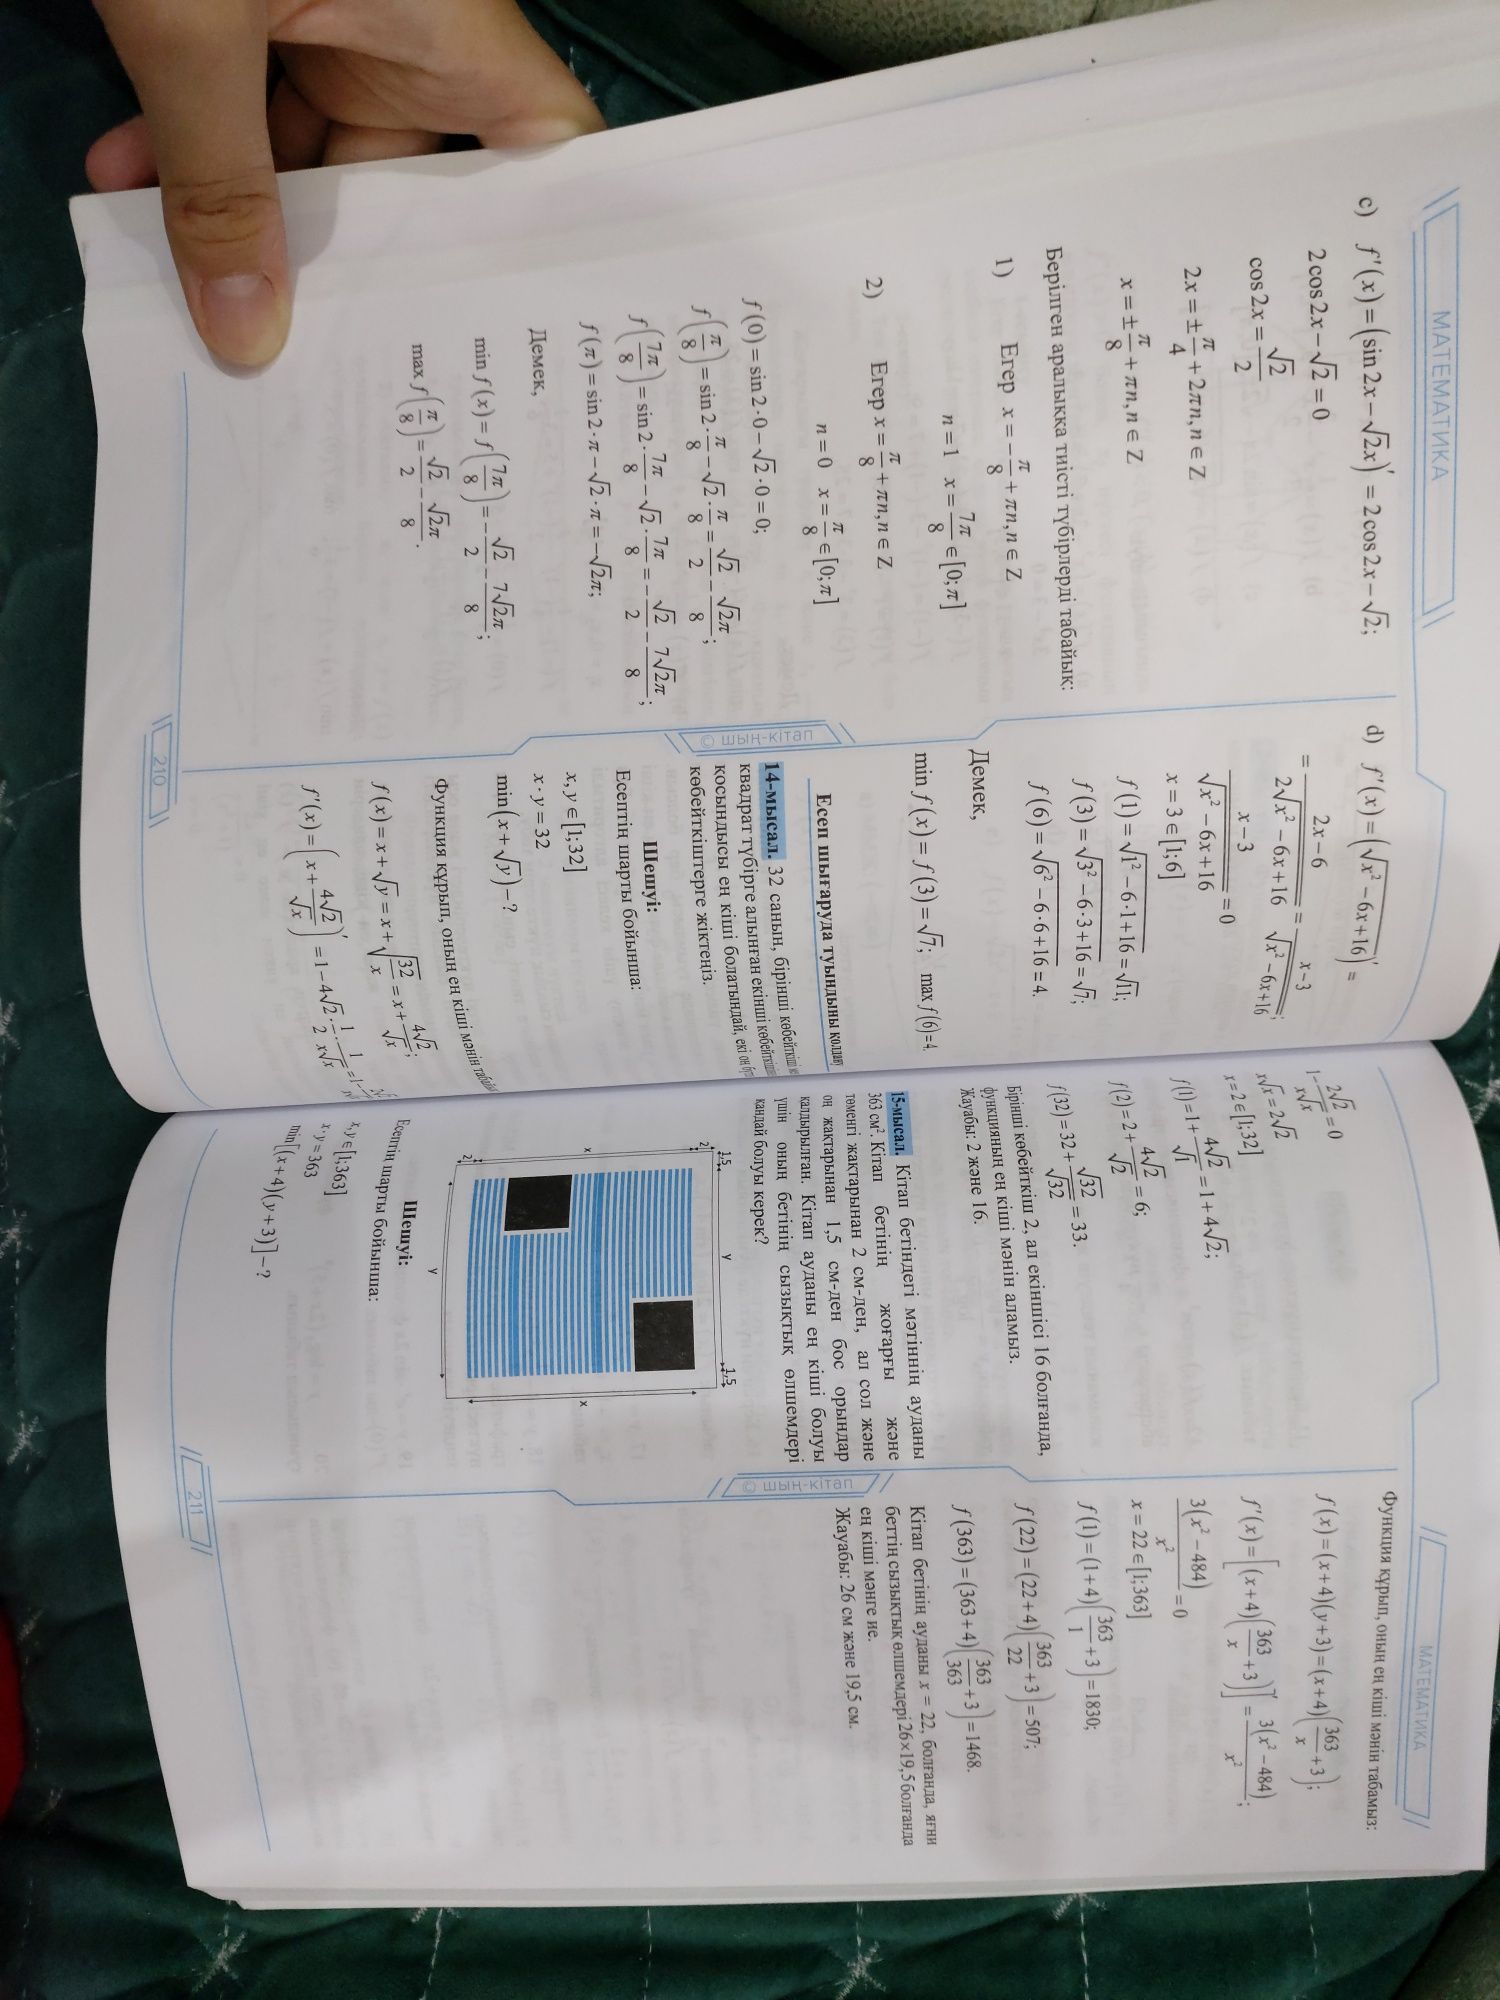 МАТЕМАТИКА
c) f′(x) = (sin 2x − √2x)′ = 2cos 2x − √2;
2cos 2x − √2 = 0
cos 2x = √2/2
2x = ± π/4 + 2πn, n ∈ Z
x = ± π/8 + πn, n ∈ Z
Берілген аралыққа тиісті түбірлерді табайық:
1) Егер x = −π/8 + πn, n ∈ Z
n = 1 x = 7π/8 ∈ [0; π]
2) Егер x = π/8 + πn, n ∈ Z
n = 0 x = π/8 ∈ [0; π]
f(0) = sin 2·0 − √2·0 = 0;
f(π/8) = sin 2·π/8 − √2·π/8 = √2/2 − √2π/8;
f(7π/8) = sin 2·7π/8 − √2·7π/8 = −√2/2 − 7√2π/8;
f(π) = sin 2·π − √2·π = −√2π;
Демек,
min f(x) = f(7π/8) = −√2/2 − 7√2π/8;
max f(π/8) = √2/2 − √2π/8.
d) f′(x) = (√(x² − 6x + 16))′ =
= (2x − 6)/(2√(x² − 6x + 16)) = (x − 3)/√(x² − 6x + 16);
(x − 3)/√(x² − 6x + 16) = 0
x = 3 ∈ [1; 6]
f(1) = √(1² − 6·1 + 16) = √11;
f(3) = √(3² − 6·3 + 16) = √7;
f(6) = √(6² − 6·6 + 16) = 4.
Демек,
min f(x) = f(3) = √7; max f(6) = 4.
Есеп шығаруда туындыны қолдану
14-мысал. 32 санын, бірінші көбейткіші мен
квадрат түбірге алынған екінші көбейткішінің
қосындысы ең кіші болатындай, екі оң
көбейткіштерге жіктеңіз.
Шешуі:
Есептің шарты бойынша:
x, y ∈ [1; 32]
x · y = 32
min(x + √y) − ?
Функция құрып, оның ең кіші мәнін
f(x) = x + √y = x + √(32/x) = x + 4√2/√x;
f′(x) = (x + 4√2/√x)′ = 1 − 4√2 · 1/2 · 1/(x√x) = 1 −
© ШЫҢ-КІТАП
210
МАТЕМАТИКА
1 − 2√2/(x√x) = 0
x√x = 2√2
x = 2 ∈ [1; 32]
f(1) = 1 + 4√2/√1 = 1 + 4√2;
f(2) = 2 + 4√2/√2 = 6;
f(32) = 32 + √32/√32 = 33.
Бірінші көбейткіш 2, ал екіншісі 16 болғанда,
функцияның ең кіші мәнін аламыз.
Жауабы: 2 және 16.
15-мысал. Кітап бетіндегі мәтіннің ауданы
363 см². Кітап бетінің жоғарғы және
төменгі жақтарынан 2 см-ден, ал сол және
оң жақтарынан 1,5 см-ден бос орындар
қалдырылған. Кітап ауданы ең кіші болуы
үшін оның бетінің сызықтық өлшемдері
қандай болуы керек?
1,5 y 1,5
2
x x
2
y
Шешуі:
Есептің шарты бойынша:
x, y ∈ [1; 363]
x · y = 363
min[(x + 4)(y + 3)] − ?
Функция құрып, оның ең кіші мәнін табамыз:
f(x) = (x + 4)(y + 3) = (x + 4)(363/x + 3);
f′(x) = [(x + 4)(363/x + 3)]′ = 3(x² − 484)/x²;
3(x² − 484)/x² = 0
x = 22 ∈ [1; 363]
f(1) = (1 + 4)(363/1 + 3) = 1830;
f(22) = (22 + 4)(363/22 + 3) = 507;
f(363) = (363 + 4)(363/363 + 3) = 1468.
Кітап бетінің ауданы x = 22, болғанда, яғни
беттің сызықтық өлшемдері 26×19,5 болғанда
ең кіші мәнге ие.
Жауабы: 26 см және 19,5 см.
© ШЫҢ-КІТАП
211